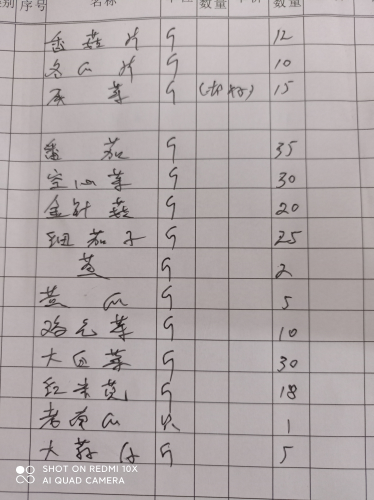 别 序号 名称 数量 数量
香菇片 G 12
冬瓜片 G 10
菜 G (切好) 15
番茄 G 35
空心菜 G 30
金针菇 G 20
细茄子 G 25
姜 G 2
黄瓜 G 5
鸡毛菜 G 10
大白菜 G 30
红米苋 G 18
老南瓜 只 1
大蒜仔 G 5
SHOT ON REDMI 10X
AI QUAD CAMERA